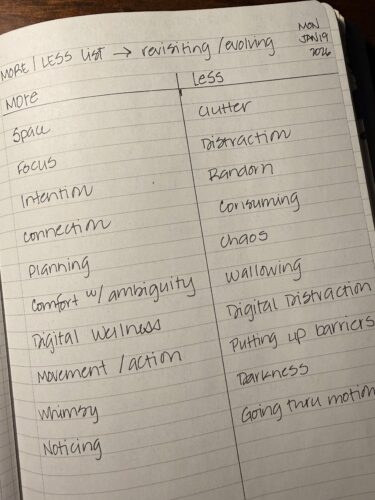 MORE / LESS LIST → revisiting / evolving
MON
JAN 19
2026
MORE
LESS
Space
Clutter
Focus
Distraction
Intention
Random
Connection
Consuming
Planning
Chaos
Comfort w/ ambiguity
Wallowing
Digital Wellness
Digital Distraction
Movement / action
Putting up barriers
Whimsy
Darkness
Noticing
Going thru motion